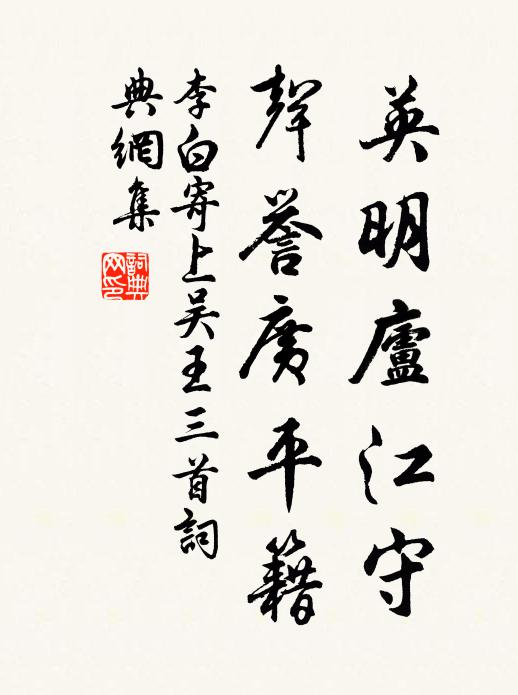 英明廬江守
聲譽廣平籍
李白寄上吳王三首詞
典網集
詞典
网印